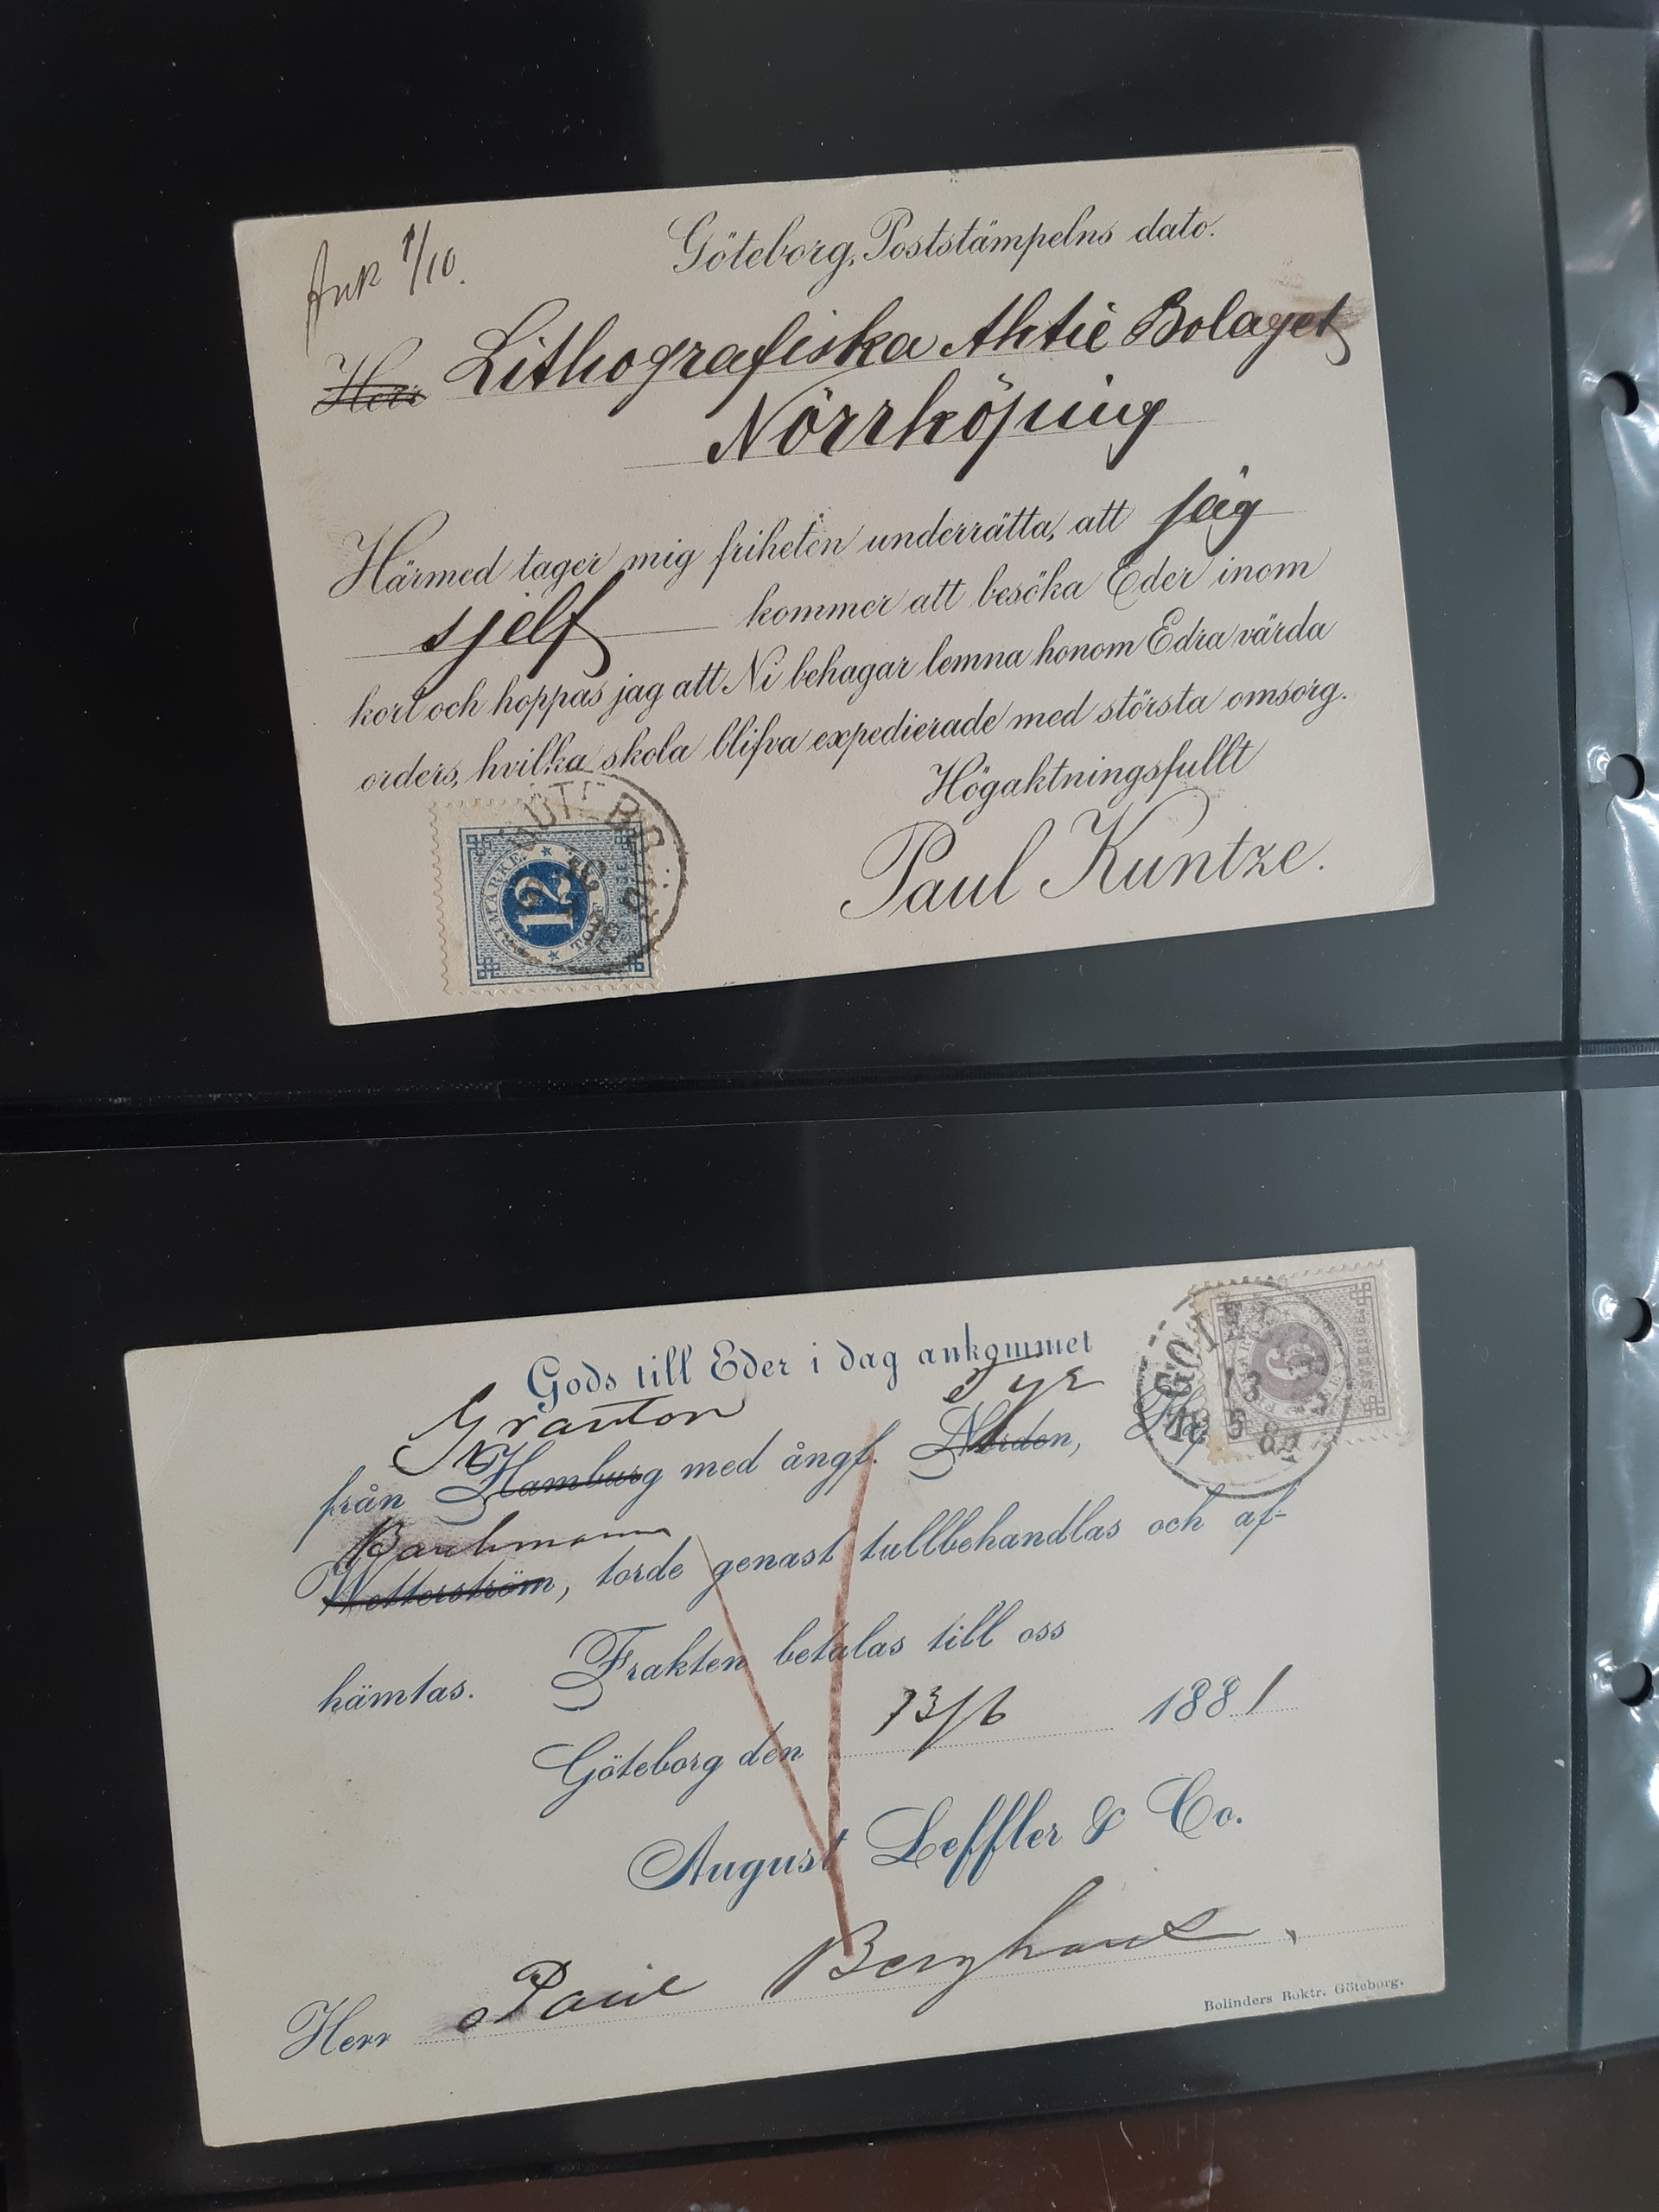 Ank 1/10.
Göteborg, Poststämpelns dato.
Herr Lithografiska Aktie Bolaget
Nörrköping
Härmed tager mig friheten underrätta, att jag
sjelf kommer att besöka Eder inom
kort och hoppas jag att Ni behagar lemna honom Edra värda
orders, hvilka skola blifva expedierade med största omsorg.
Högaktningsfullt
Paul Kuntze.
FRIMÄRKE
12
TOLF
Gods till Eder i dag ankommet
Granton Tyr
från Hamburg med ångf. Norden,
Wetterström, torde genast tullbehandlas och af-
hämtas. Frakten betalas till oss
Göteborg den 13/5 1881
August Leffler & Co.
Herr Paul Berghaus,
Bolinders Boktr. Göteborg.
SVERIGE